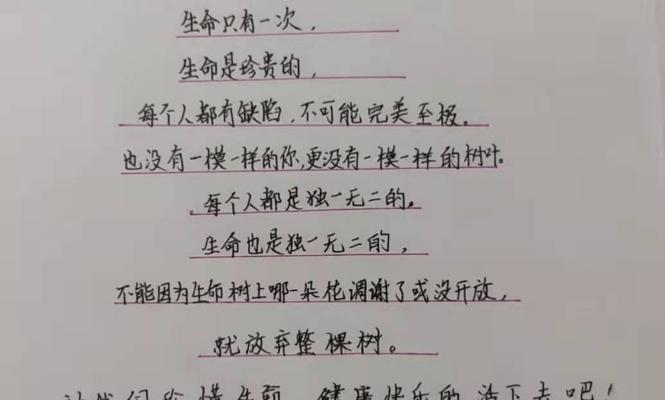 生命只有一次，
生命是珍贵的，
每个人都有缺陷，不可能完美至极。
也没有一模一样的你，更没有一模一样的树叶。
每个人都是独一无二的。
生命也是独一无二的，
不能因为生命树上哪一朵花调谢了或没开放，
就放弃整棵树。
健康快乐的活下去吧！